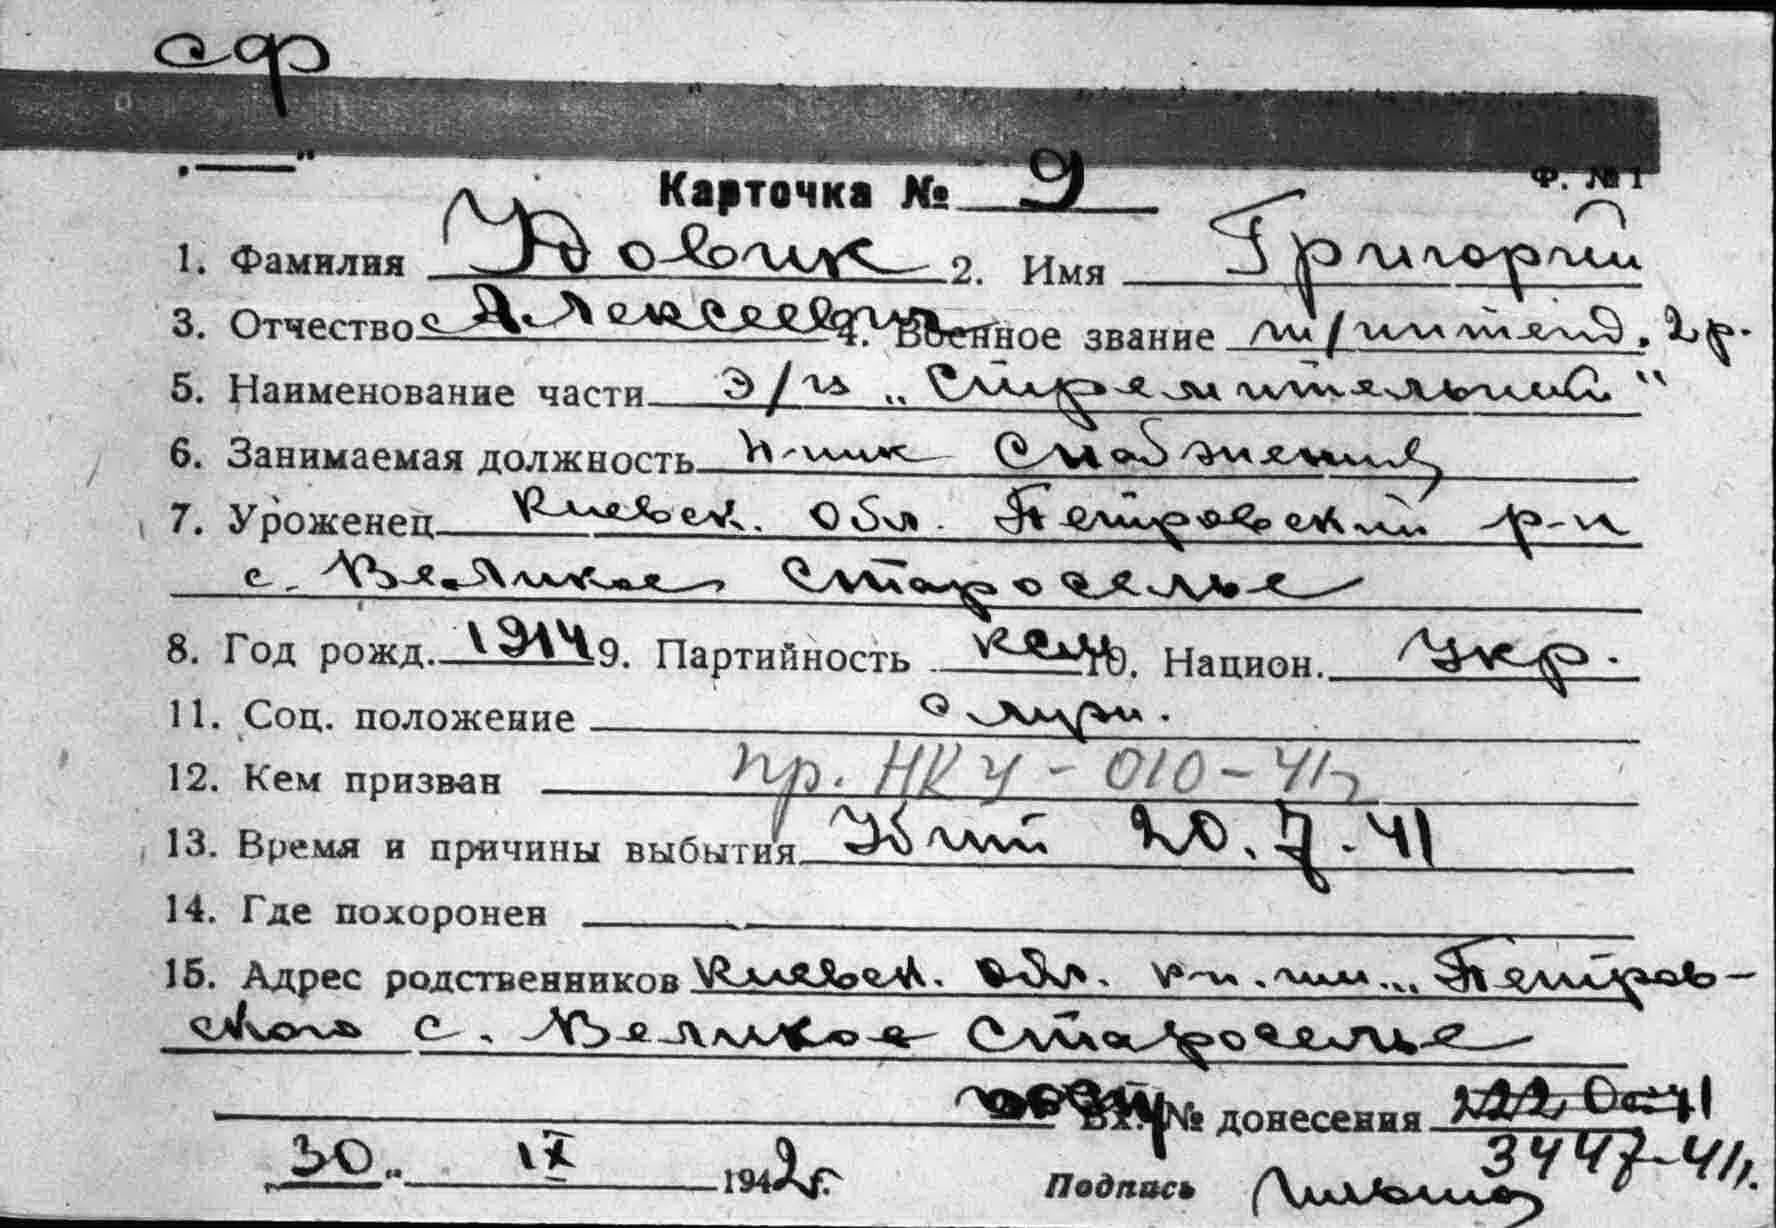 сф
„——"
Ф. № 1
Карточка № 9
1. Фамилия Удовик 2. Имя Григорий
3. Отчество Алексеевич 4. Военное звание т/интенд. 2 р.
5. Наименование части Э/м „Стремительный"
6. Занимаемая должность н-ник снабжения
7. Уроженец Киевск. обл. Петровский р-н
с. Великое Староселье
8. Год рожд. 1914 9. Партийность 10. Национ. Укр.
11. Соц. положение служ.
12. Кем призван пр. НКУ-010-41г
13. Время и причины выбытия Убит 20.7.41
14. Где похоронен
15. Адрес родственников Киевск. обл. Петров-
ского с. Великое Староселье
Вх. № донесения 41
3447-41г.
30 „ IX 1942г. Подпись